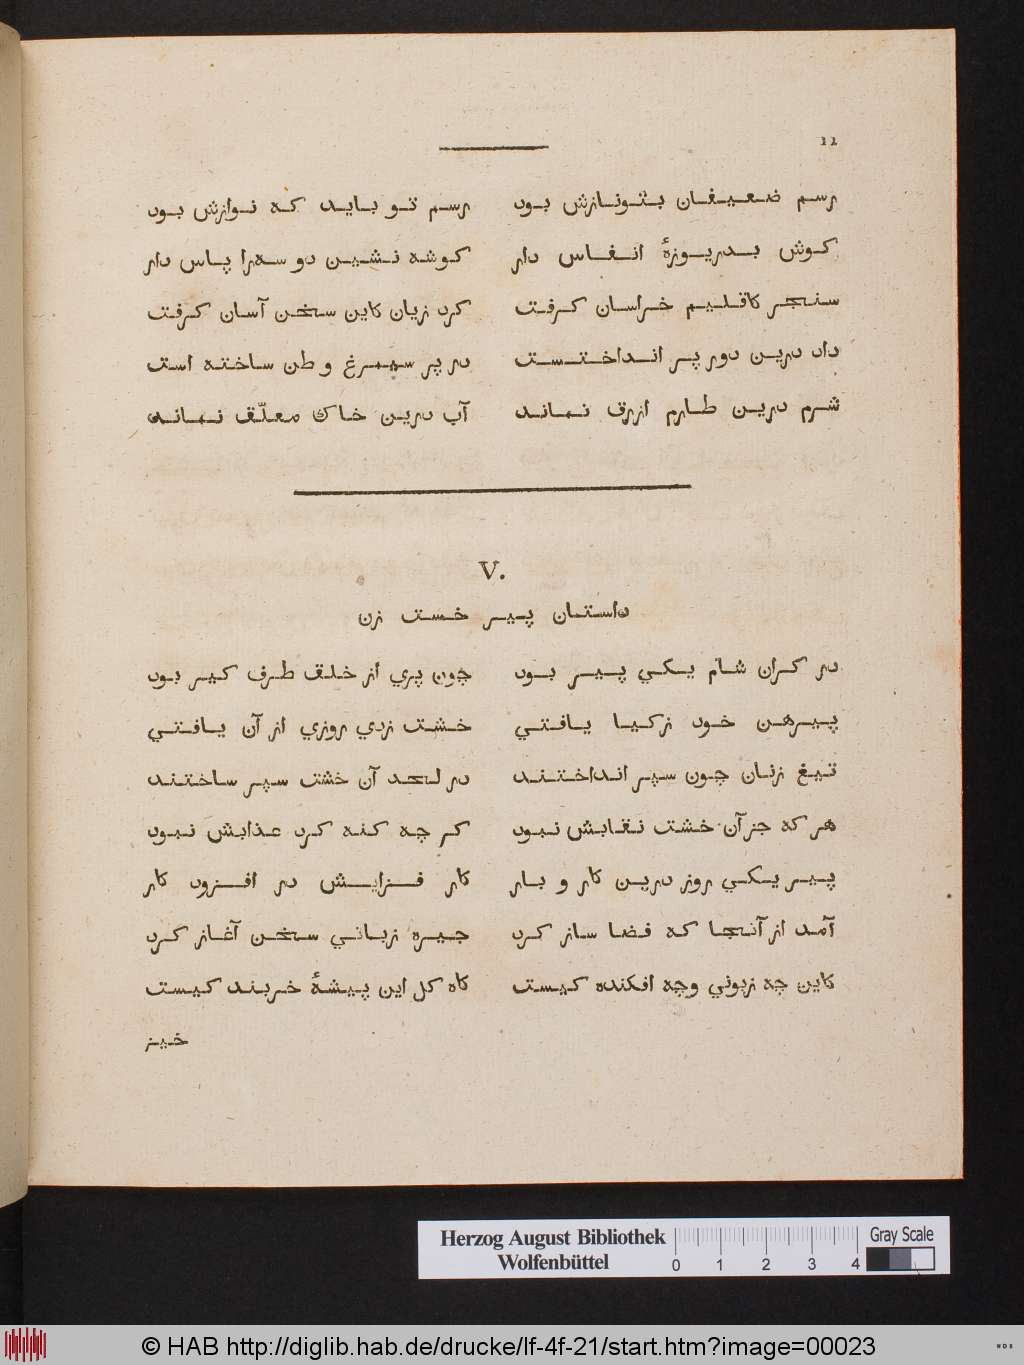 ۱۱
رسم ضعیفان بتونازش بود رسم تو باید که نوازش بود
کوش بدریوزهٔ انفاس دار کوشه نشین دو سه‌را پاس دار
سنجر کاقلیم خراسان کرفت کرد زیان کاین سخن آسان کرفت
داد درین دور پر انداختست در پر سیمرغ وطن ساخته است
شرم درین طارم ازرق نماند آب درین خاك معلّق نماند
V.
داستان پیر خست زن
در کران شام یکي پیر بود چون پري از خلق طرف کیر بود
پیرهن خود زکیا یافتي خشت زدي روزي از آن یافتي
تیغ زنان چون سپر انداختند در لحد آن خشت سپر ساختند
هر که جز آن خشت نقابش نبود کر چه کنه کرد عذابش نبود
پیر یکي روز درین کار و بار کار فزایش در افزود کار
آمد از آنجا که فضا ساز کرد جیره زباني سخن آغاز کرد
کاین چه زبوني وچه افکنده کیست کاه کل این پیشهٔ خربند کیست
خیز
Herzog August Bibliothek
Wolfenbüttel
0 1 2 3 4
Gray Scale
© HAB http://diglib.hab.de/drucke/lf-4f-21/start.htm?image=00023